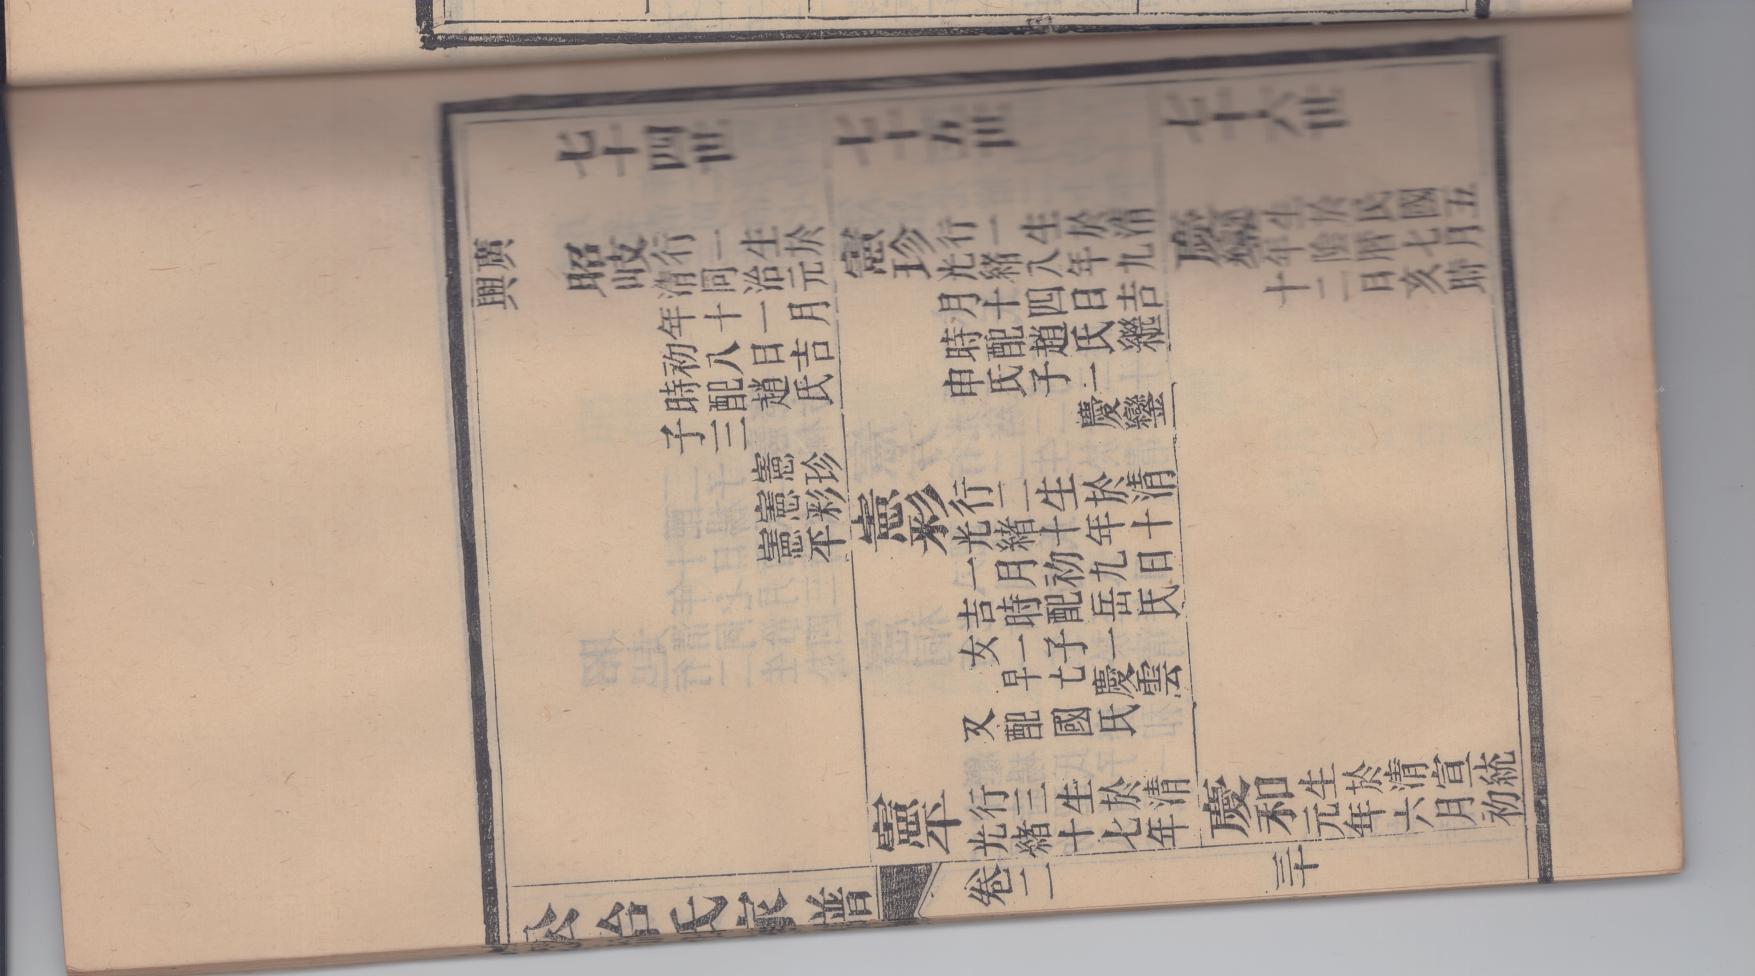 七十四世
七十五世
七十六世
廣興
昭岐
行一生於
清同治元
年十一月
初八日吉
時配趙氏
子三
憲珍
憲彩
憲平
憲珍
行一生於清
光緒八年九
月十四日吉
時配趙氏繼
申氏子一
慶鑾
憲彩
行二生於清
光緒十年十
一月初九日
吉時配岳氏
女一子一
早七慶雲
又配國氏
憲平
行三生於清
光緒十七年
慶鑾
生於民國五
年陰曆七月
十二日亥時
慶和
生於清宣統
元年六月初
公冶氏家譜
卷二
三十